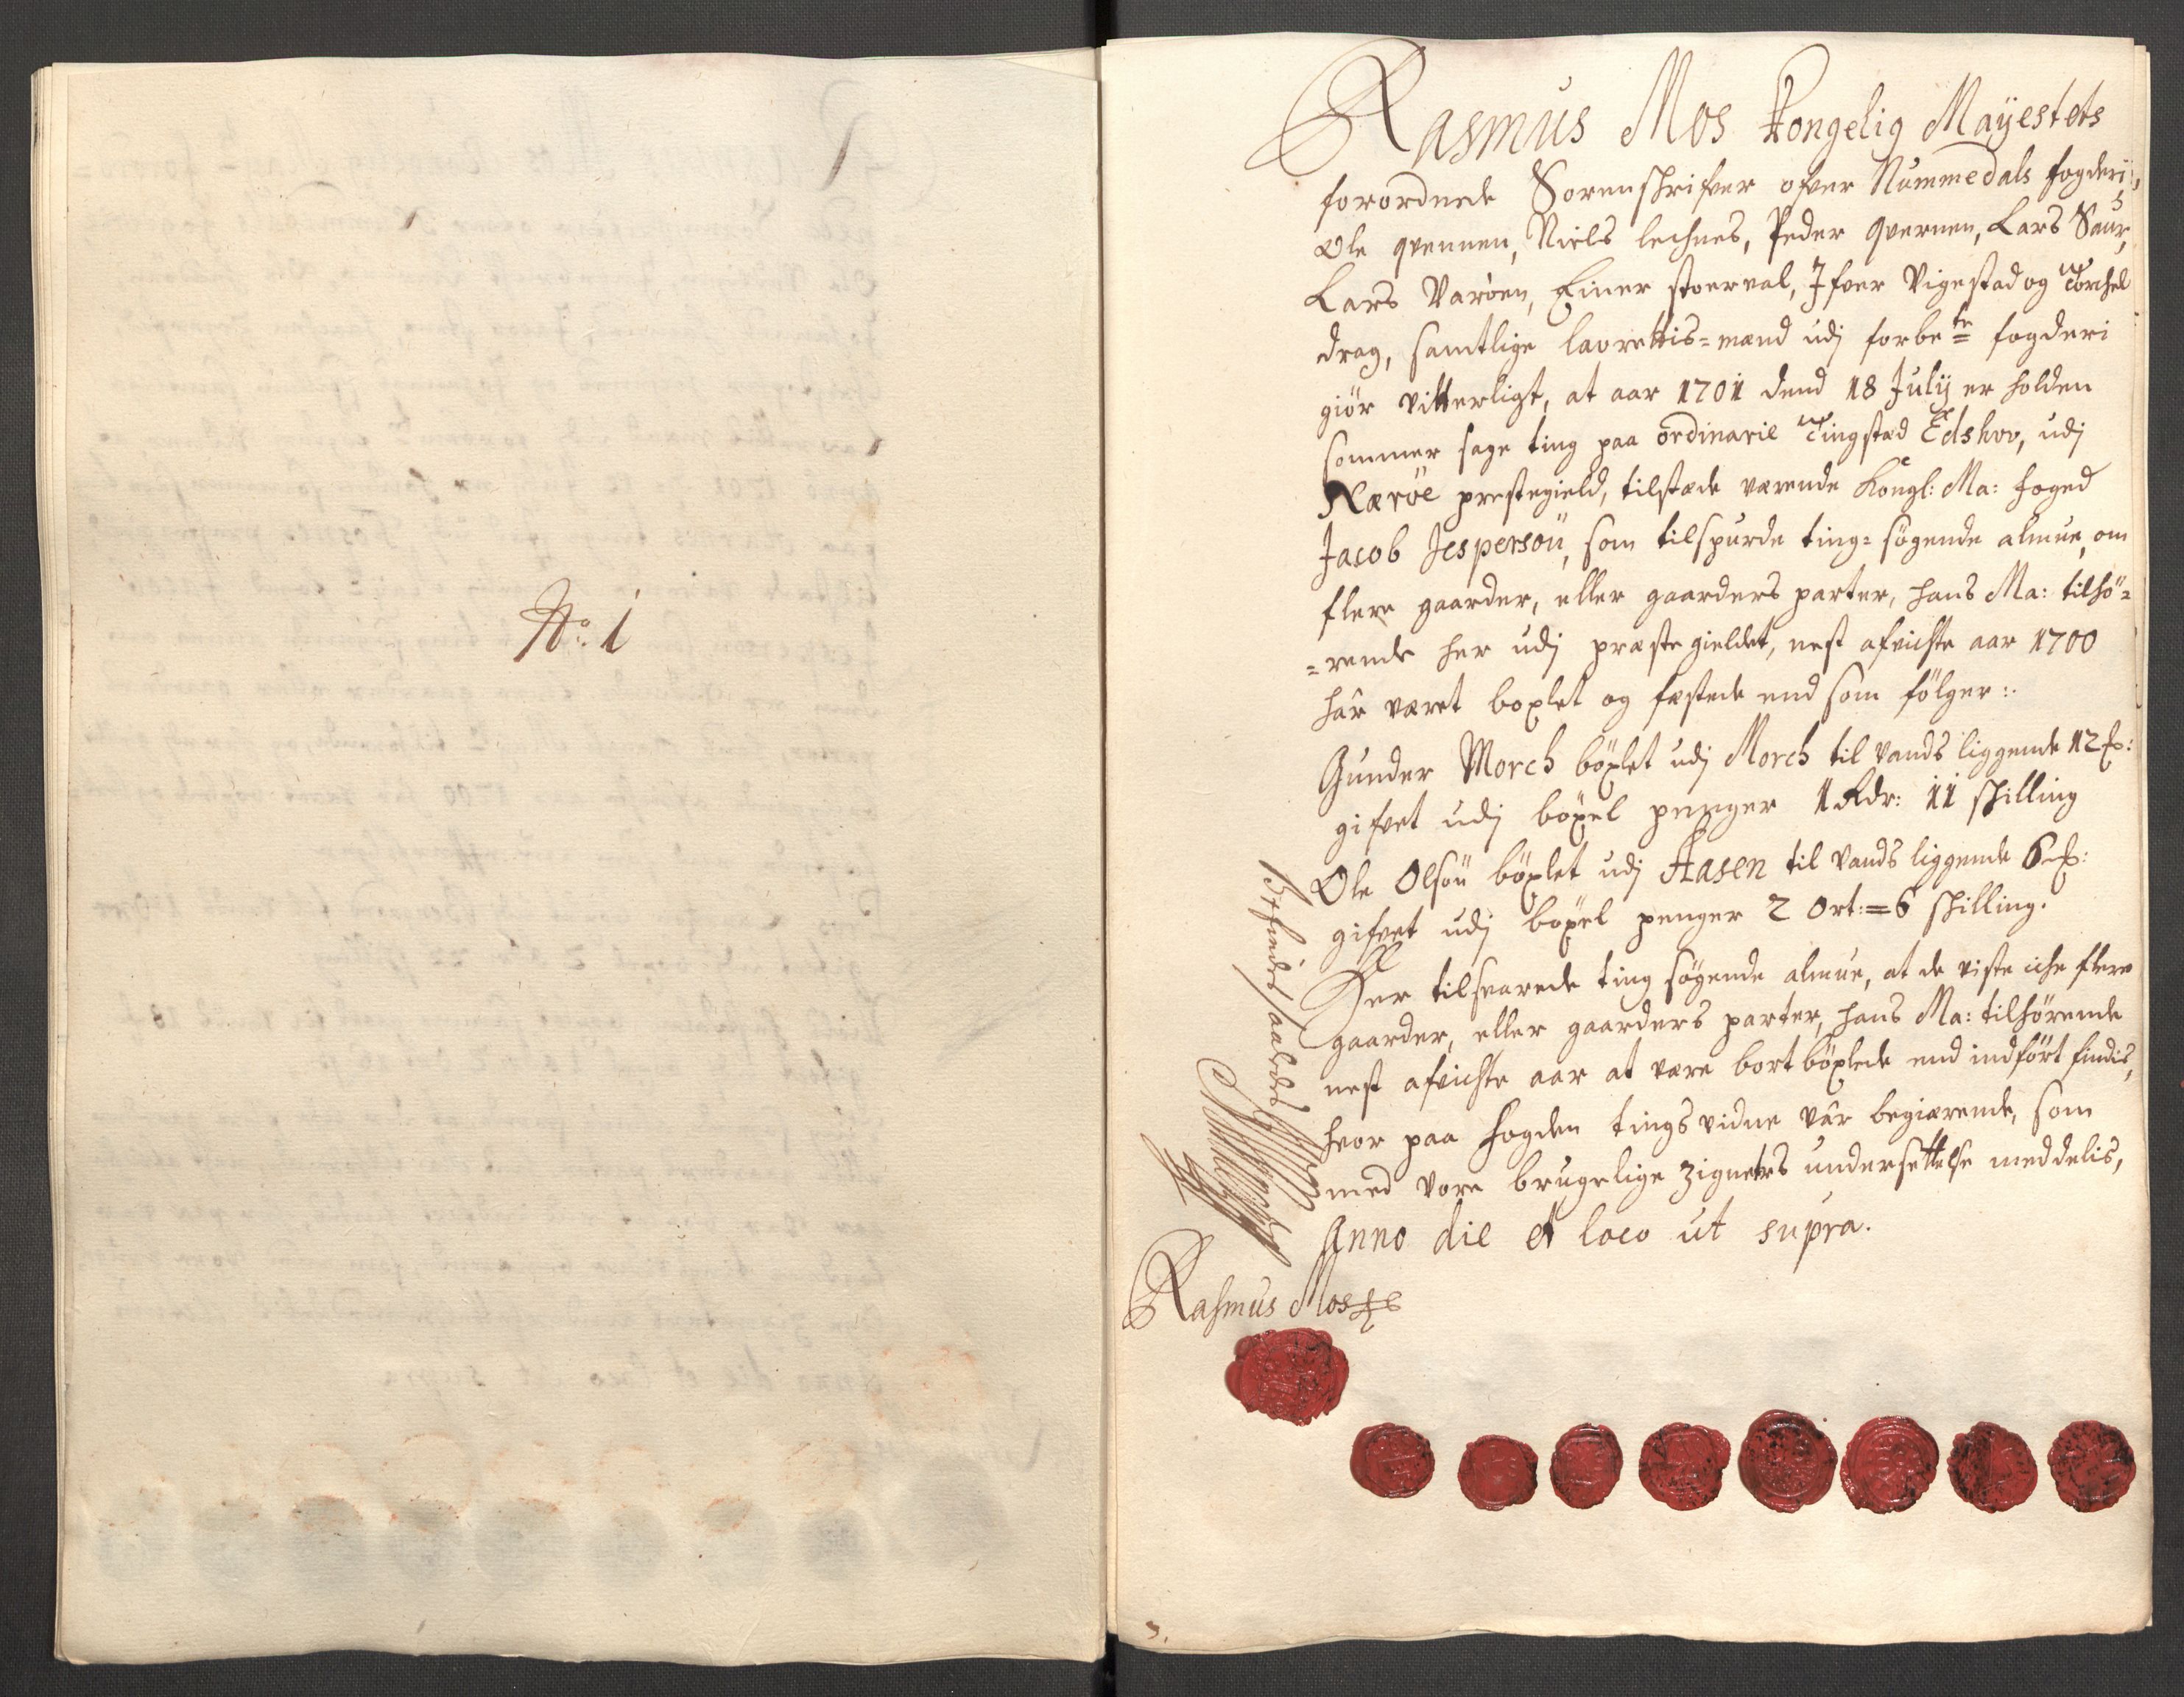 No: 1
Rasmus Mos Kongelig Mayestets
forordnede Sorenschrifver ofver Nummedals fogderij,
Ole qvennen, Niels lechnes, Peder qvernen, Lars Saur,
Lars Varöen, Einer stoerval, Ifver Vigestad og Torchel
drag, samtlige laurettis=mænd udj forbete fogderi
giör vitterligt, at aar 1701 dend 18 Julij er holden
sommer sage ting paa ordinarie Tingstæd Edshov, udj
Næröe prestegield, tilstæde værende Kongl: Ma: foged
Jacob Jespersøn, som tilspurde ting=søgende almue, om
flere gaarder, eller gaarders parter, hans Ma: tilhö=
=rende her udj præste gieldet, nest afvichte aar 1700
hâr været boxlet og fæstede end som fölger:
Gunder Morch böxlet udj Morch til vands liggende 12
gifvet udj böxel penger 1 Rdr: 11 skilling
Ole Olsön böxlet udj Aasen til vands liggende 6
gifvet udj böxel penger 2 Ort:=6 skilling.
Her tilsvarede ting søgende almue, at de viste iche flere
gaarder, eller gaarders parter, hans Ma: tilhörende
nest afvichte aar at være bort böxlede end indfört findis,
hvor paa fogden tings vidne vâr begiærende, som
med vore brugelige zigneters undersettelse meddelis,
Anno die et loco ut supra.
Rasmus Mos